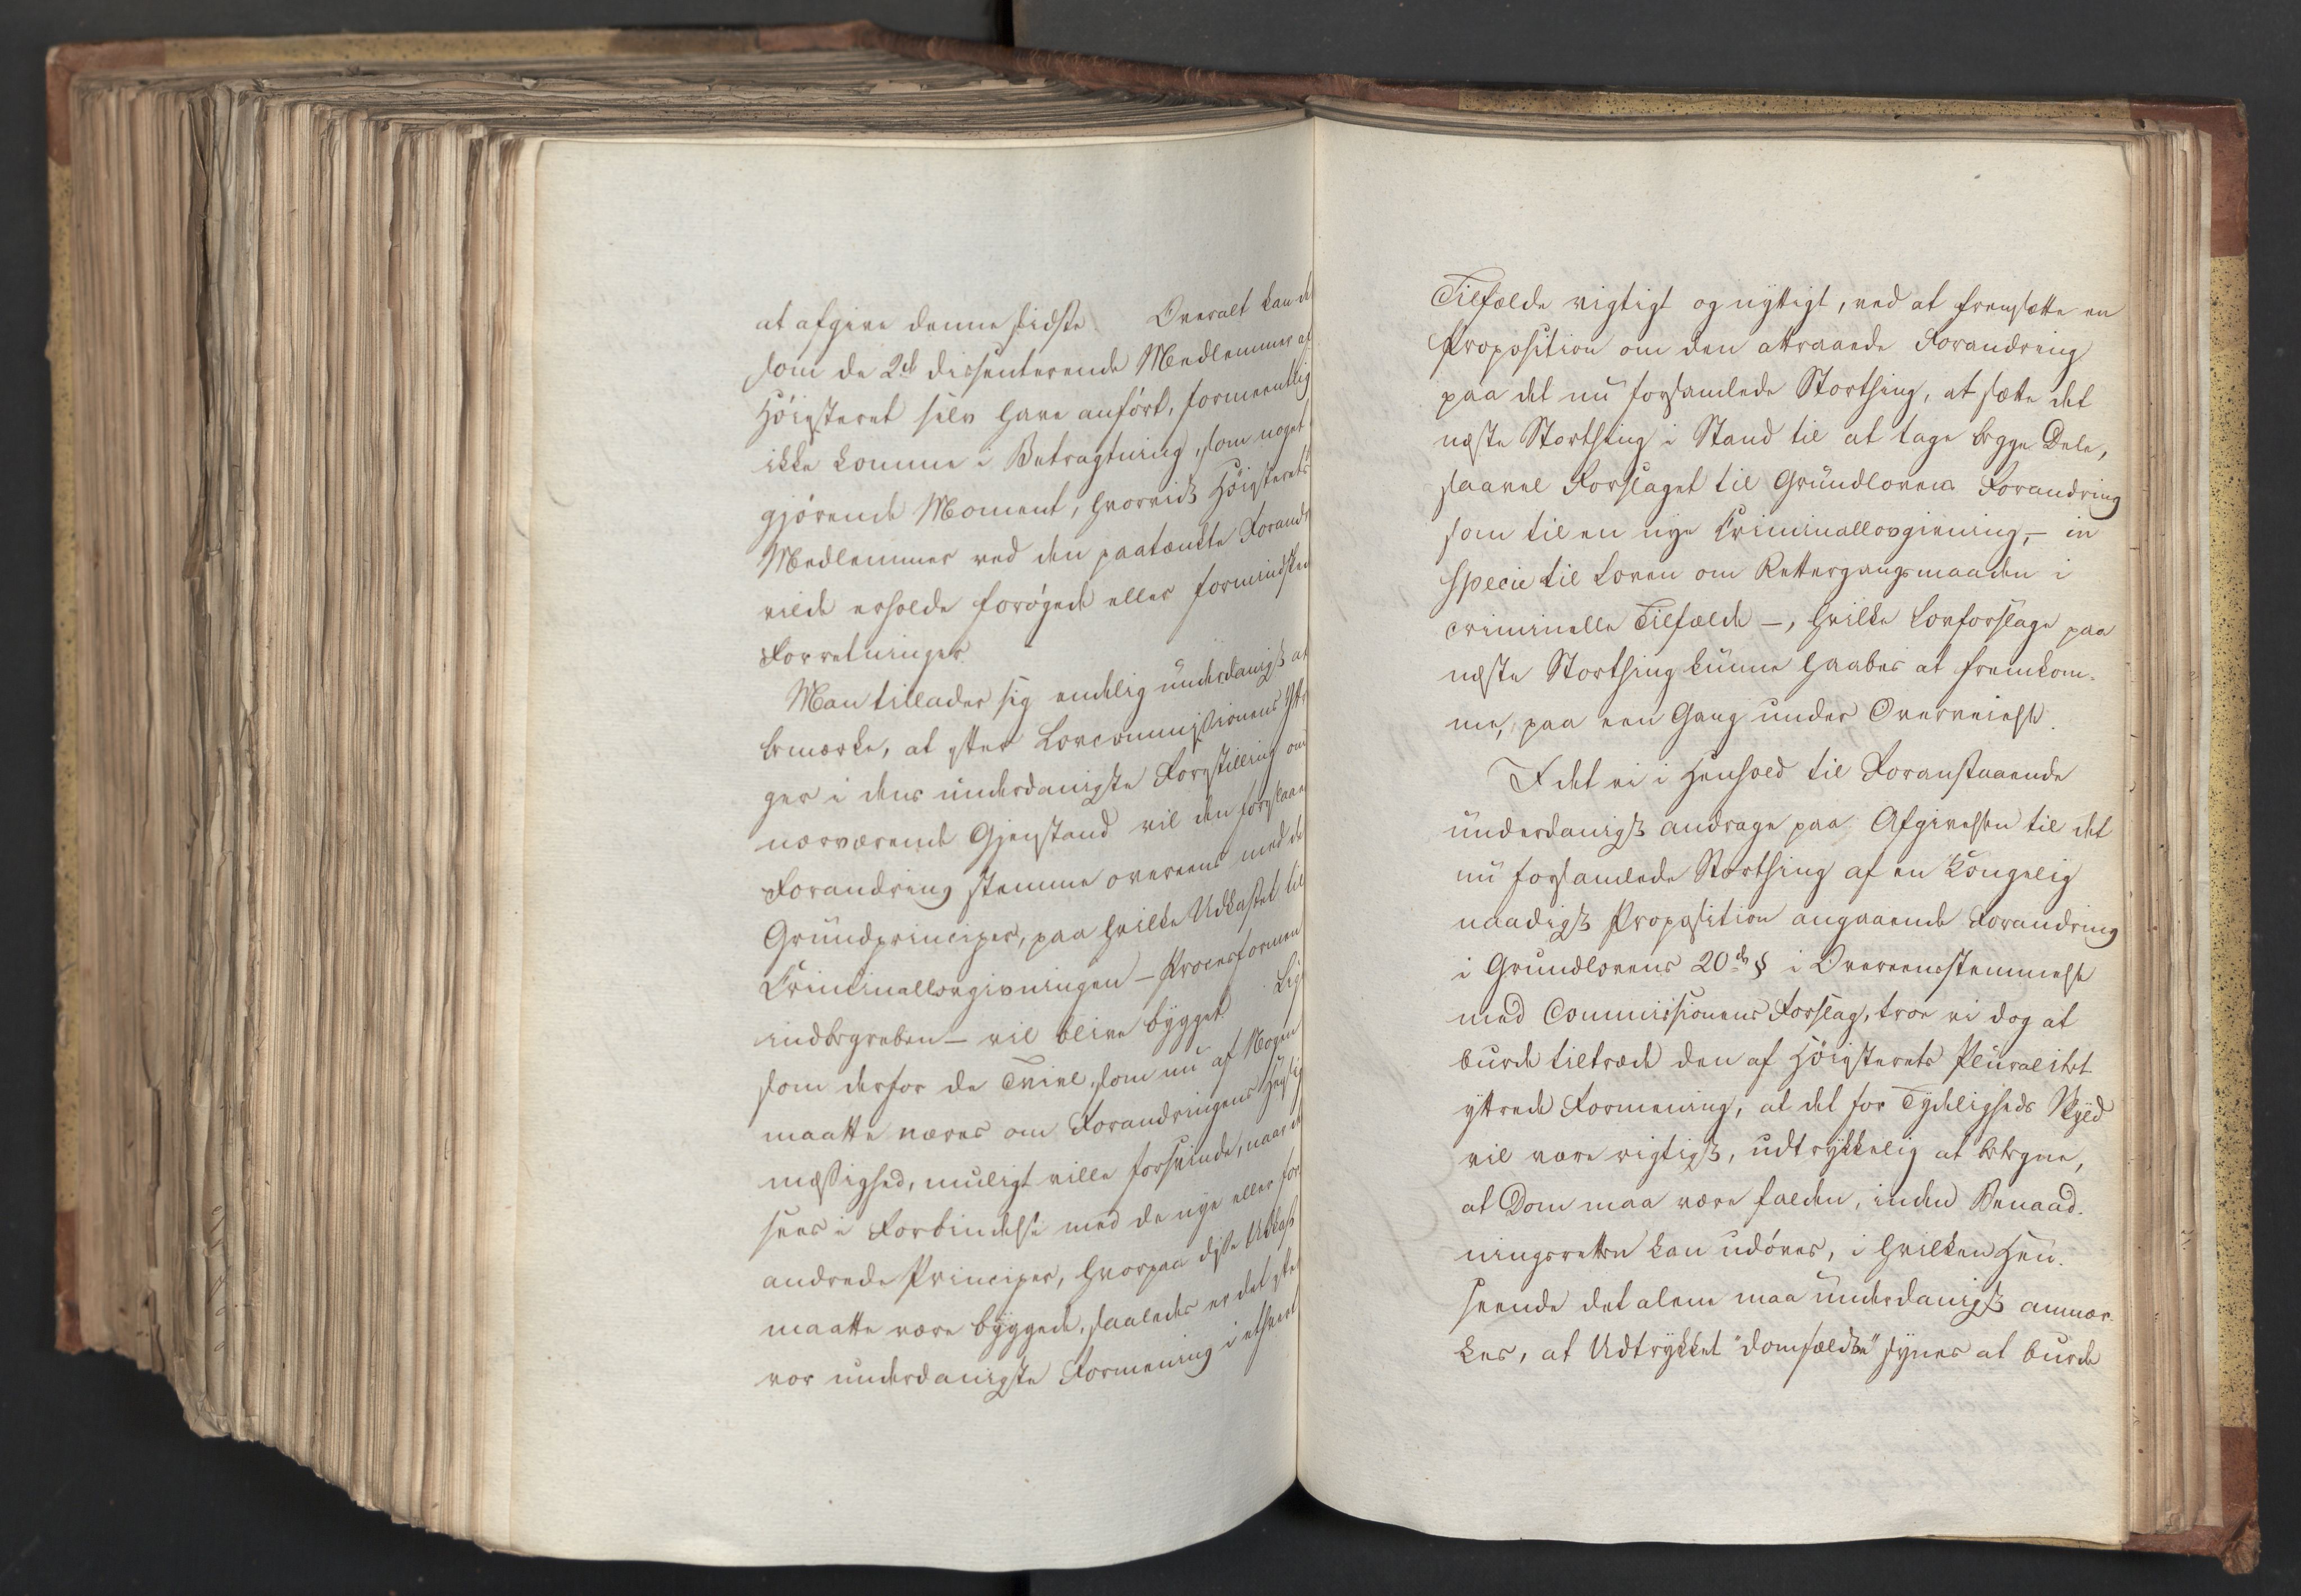 at afgive denne sidste. Overalt kan de
som de 2de dissenterende Medlemmer af
Høiesteret selv have anført, formeentlig
ikke komme i Betragtning, som noget
gjørende Moment, hvorvidt Høiesterets
Medlemmer ved den paatænkte Forand
vilde erholde forøgede eller formindsked
Forretninger.
Man tillader sig endelig underdanigst at
bemærke, at efter Lovcommissionens Yttr
ger i dens underdanigste Forestilling om
nærværende Gjenstand vil den foreslaae
Forandring stemme overeens med de
Grundprinciper, paa hvilke Udkastet til
Criminallovgivningen – Procesformen
indbegreben – vil blive bygget. Lig
som derfor de Tvivl, som nu af Nogen
maatte næres om Forandringens Hensig
mæssighed, muligt ville forsvinde, naar d
sees i Forbindelse med de nye eller for
andrede Principer, hvorpaa disse Udkast
maatte være byggede, saaledes er det efte
vor underdanigste Formening i ethvert
Tilfælde rigtigt og nyttigt, ved at fremsætte en
Proposition om den attraaede Forandring
paa det nu forsamlede Storthing, at sætte det
næste Storthing i Stand til at tage begge Dele,
saavel Forslaget til Grundlovens Forandring
som til en nye Criminallovgivning, – in
specie til Loven om Rettergangsmaaden i
criminelle Tilfælde –, hvilke Lovforslage paa
næste Storthing kunne haabes at fremkom-
me, paa een Gang under Overveielse.
I det vi i Henhold til Foranstaaende
underdanigst andrage paa Afgivelsen til det
nu forsamlede Storthing af en Kongelig
naadigst Proposition angaaende Forandring
i Grundlovens 20de § i Overeensstemmelse
med Commissionens Forslag, troe vi dog at
burde tiltræde den af Høiesterets Pluralitet
yttrede Formening, at det for Tydeligheds Skyld
vil være rigtigst, udtrykkelig at betegne,
at Dom maa være falden, inden Benaad-
ningsretten kan udøves, i hvilken Hen-
seende det alene maa underdanigst anmær-
kes, at Udtrykket "domfældte" synes at burde